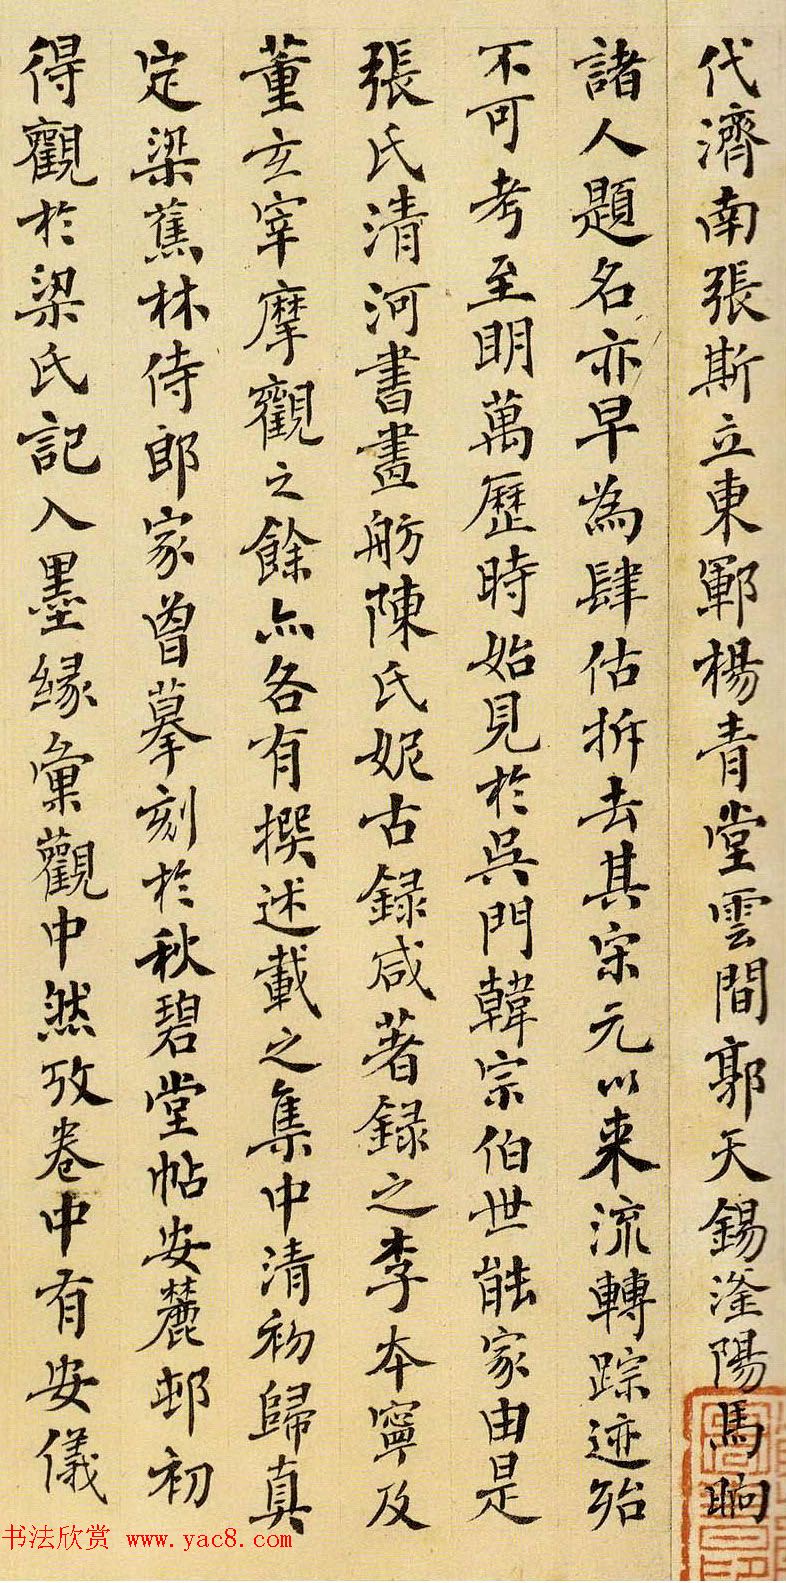 代濟南張斯立東鄆楊青堂雲間郭天錫滏陽馬昫
諸人題名亦早為肆估拆去其宋元以来流轉踪迹殆
不可考至明萬歷時始見於吳門韓宗伯世能家由是
張氏清河書畫舫陳氏妮古録咸著録之李本寧及
董玄宰摩觀之餘亦各有撰述載之集中清初歸真
定梁蕉林侍郎家曾摹刻於秋碧堂帖安麓邨初
得觀於梁氏記入墨緣彙觀中然攷卷中有安儀
书法欣赏 www.yac8.com